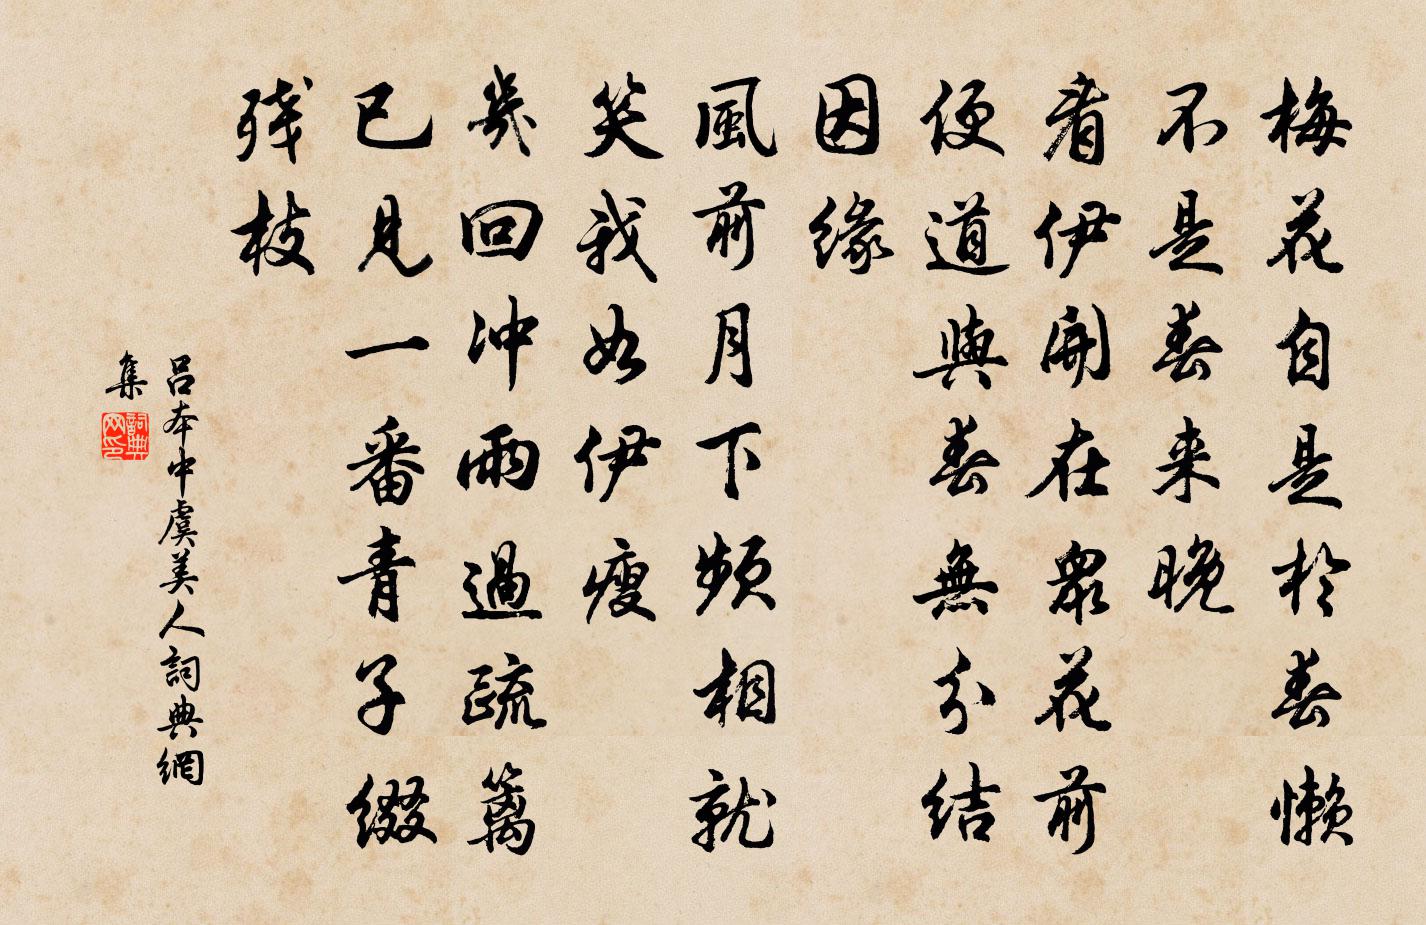 梅花自是於春懶
不是春来晚
看伊開在眾花前
便道與春無分結
因緣
風前月下頻相就
笑我如伊瘦
幾回冲雨過疏籬
已見一番青子綴
残枝
呂本中虞美人詞典網
集
詞典网印